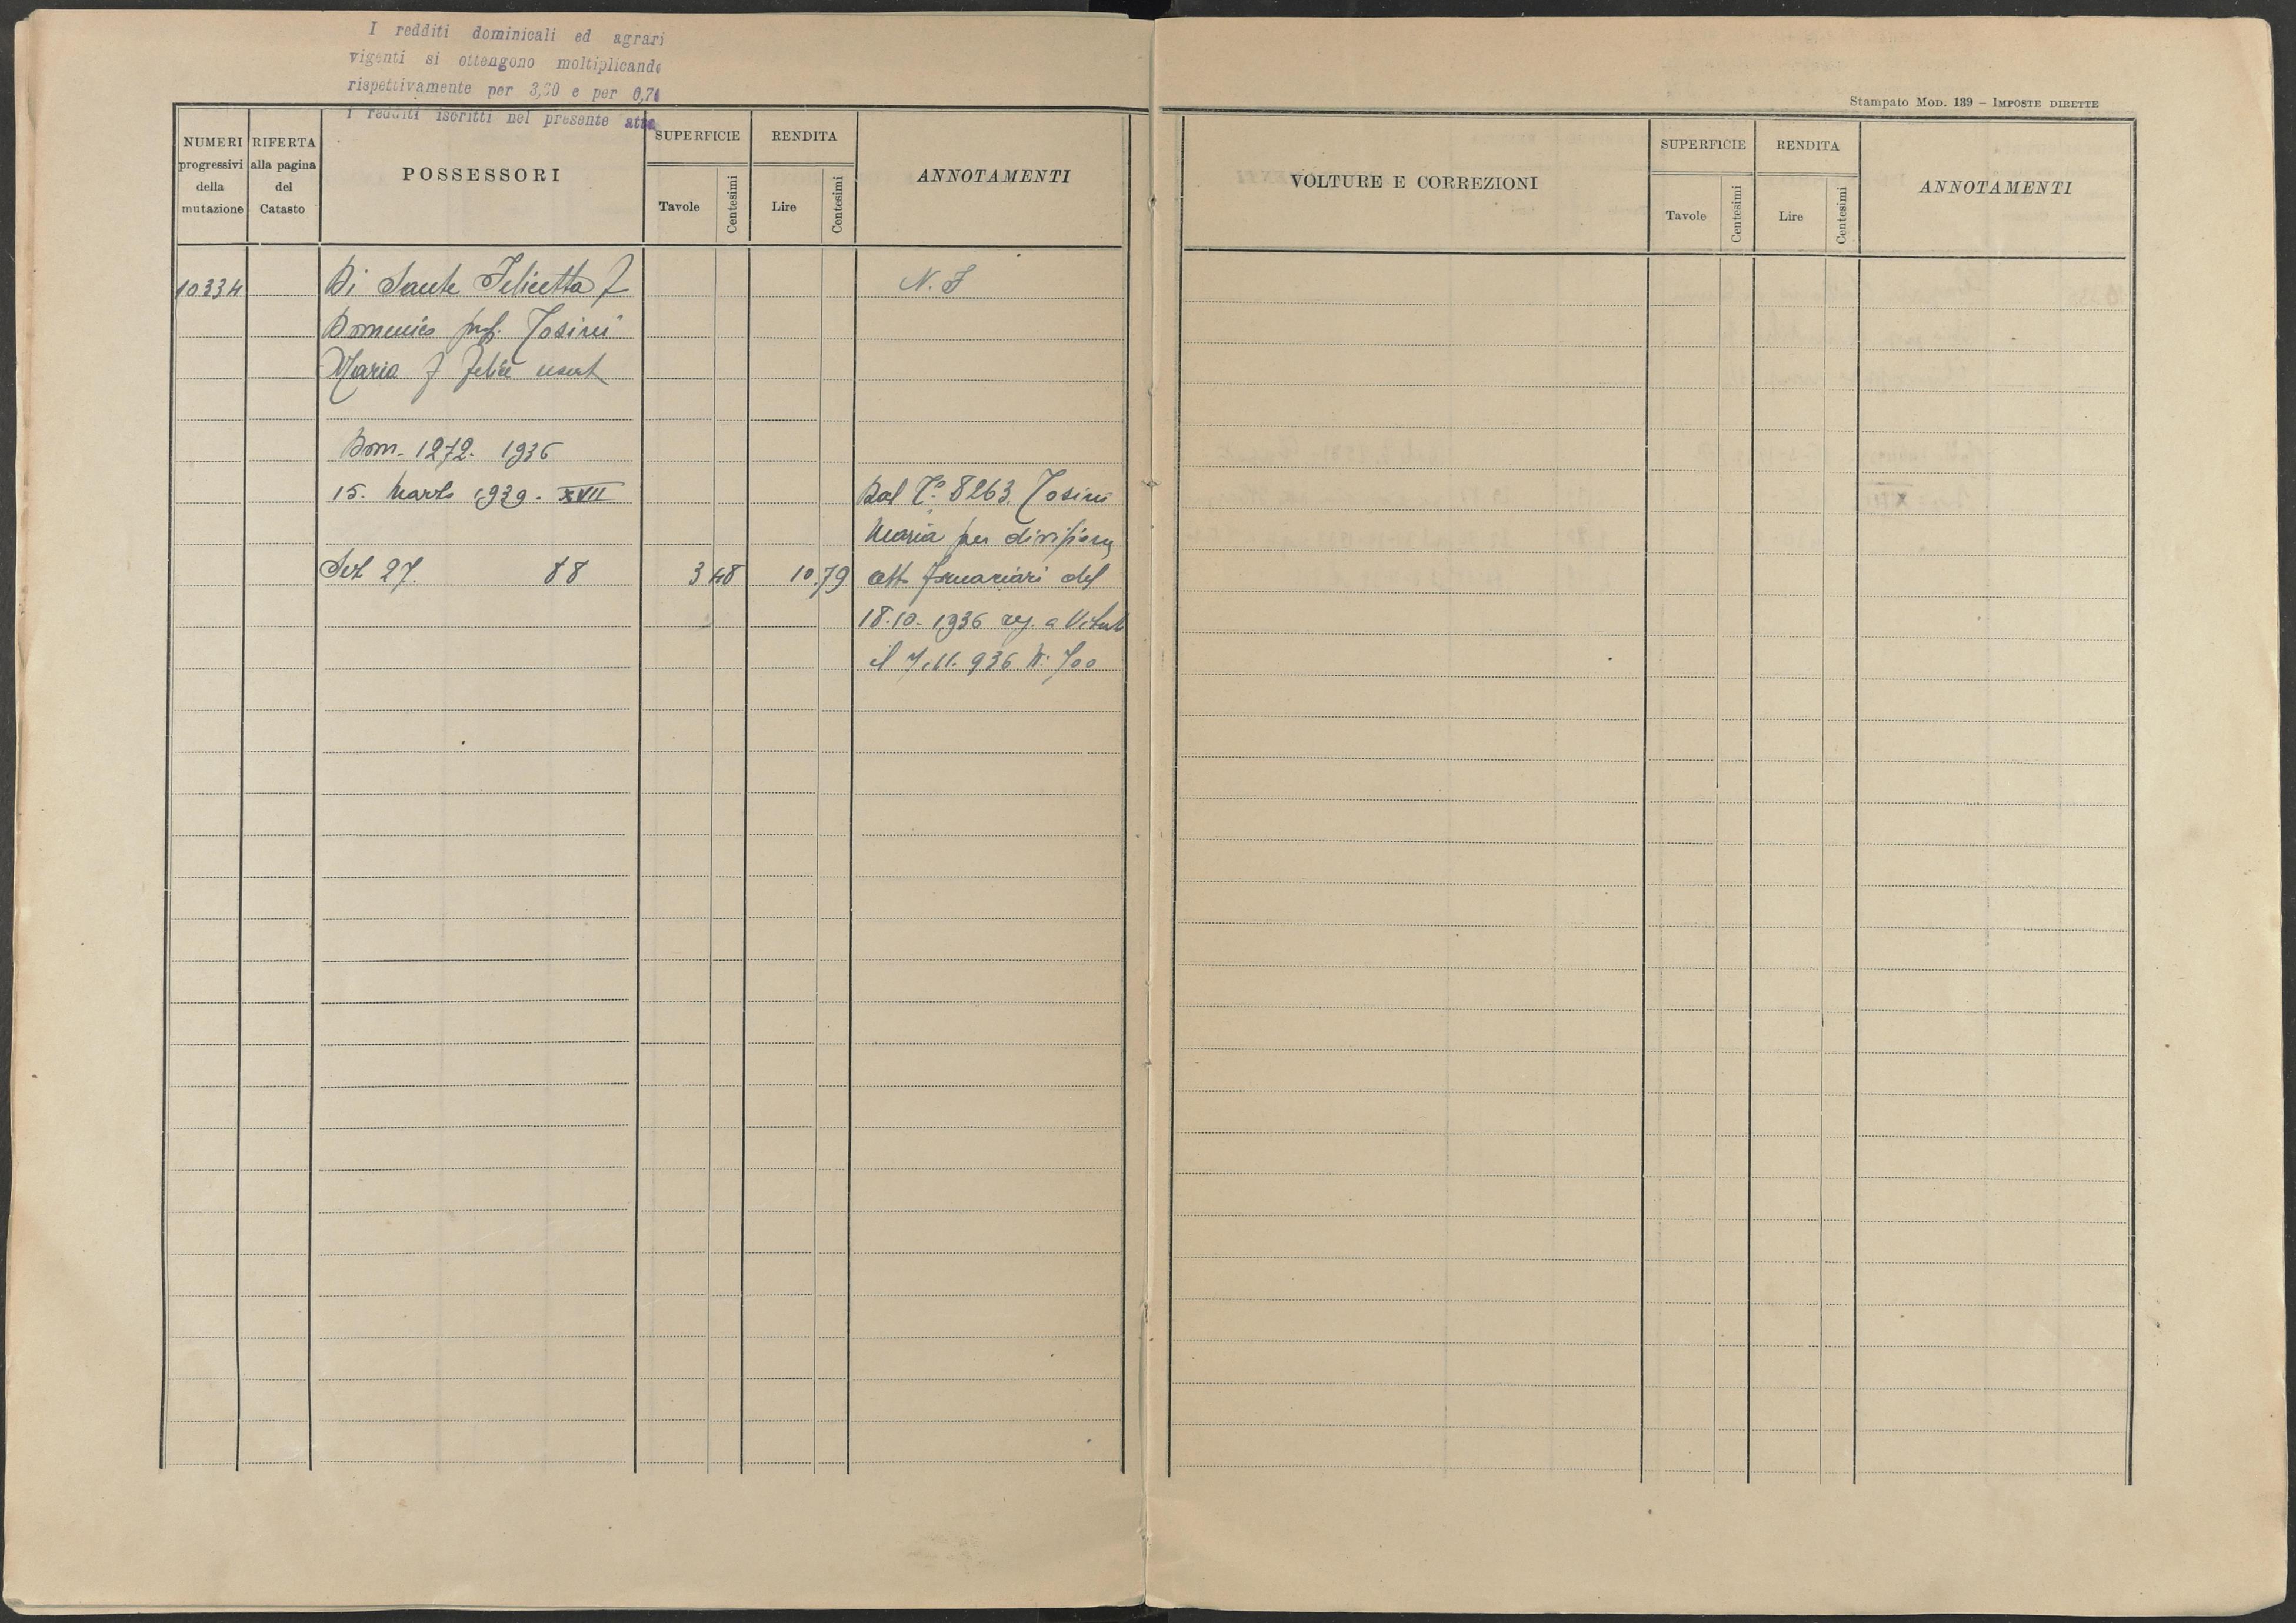 I redditi dominicali ed agrari
vigenti si ottengono moltiplicando
rispettivamente per 3,20 e per 0,74
i redditi iscritti nel presente atto
Stampato MOD. 139 – IMPOSTE DIRETTE
NUMERI progressivi della mutazione
RIFERTA alla pagina del Catasto
POSSESSORI
SUPERFICIE
Tavole
Centesimi
RENDITA
Lire
Centesimi
ANNOTAMENTI
VOLTURE E CORREZIONI
SUPERFICIE
Tavole
Centesimi
RENDITA
Lire
Centesimi
ANNOTAMENTI
10334 Di Sante Felicetta f N. I
Domenico prop. Tosini
Maria f Felice usuf
Dom. 1272. 1936
15. Marzo 1939. XVII Dal C.° 8263 Tosini
Maria per divisione
Sez 27. 88 3 48 10.79 atto del
18.10.1936 reg. a
il 7.11.936 N. 700